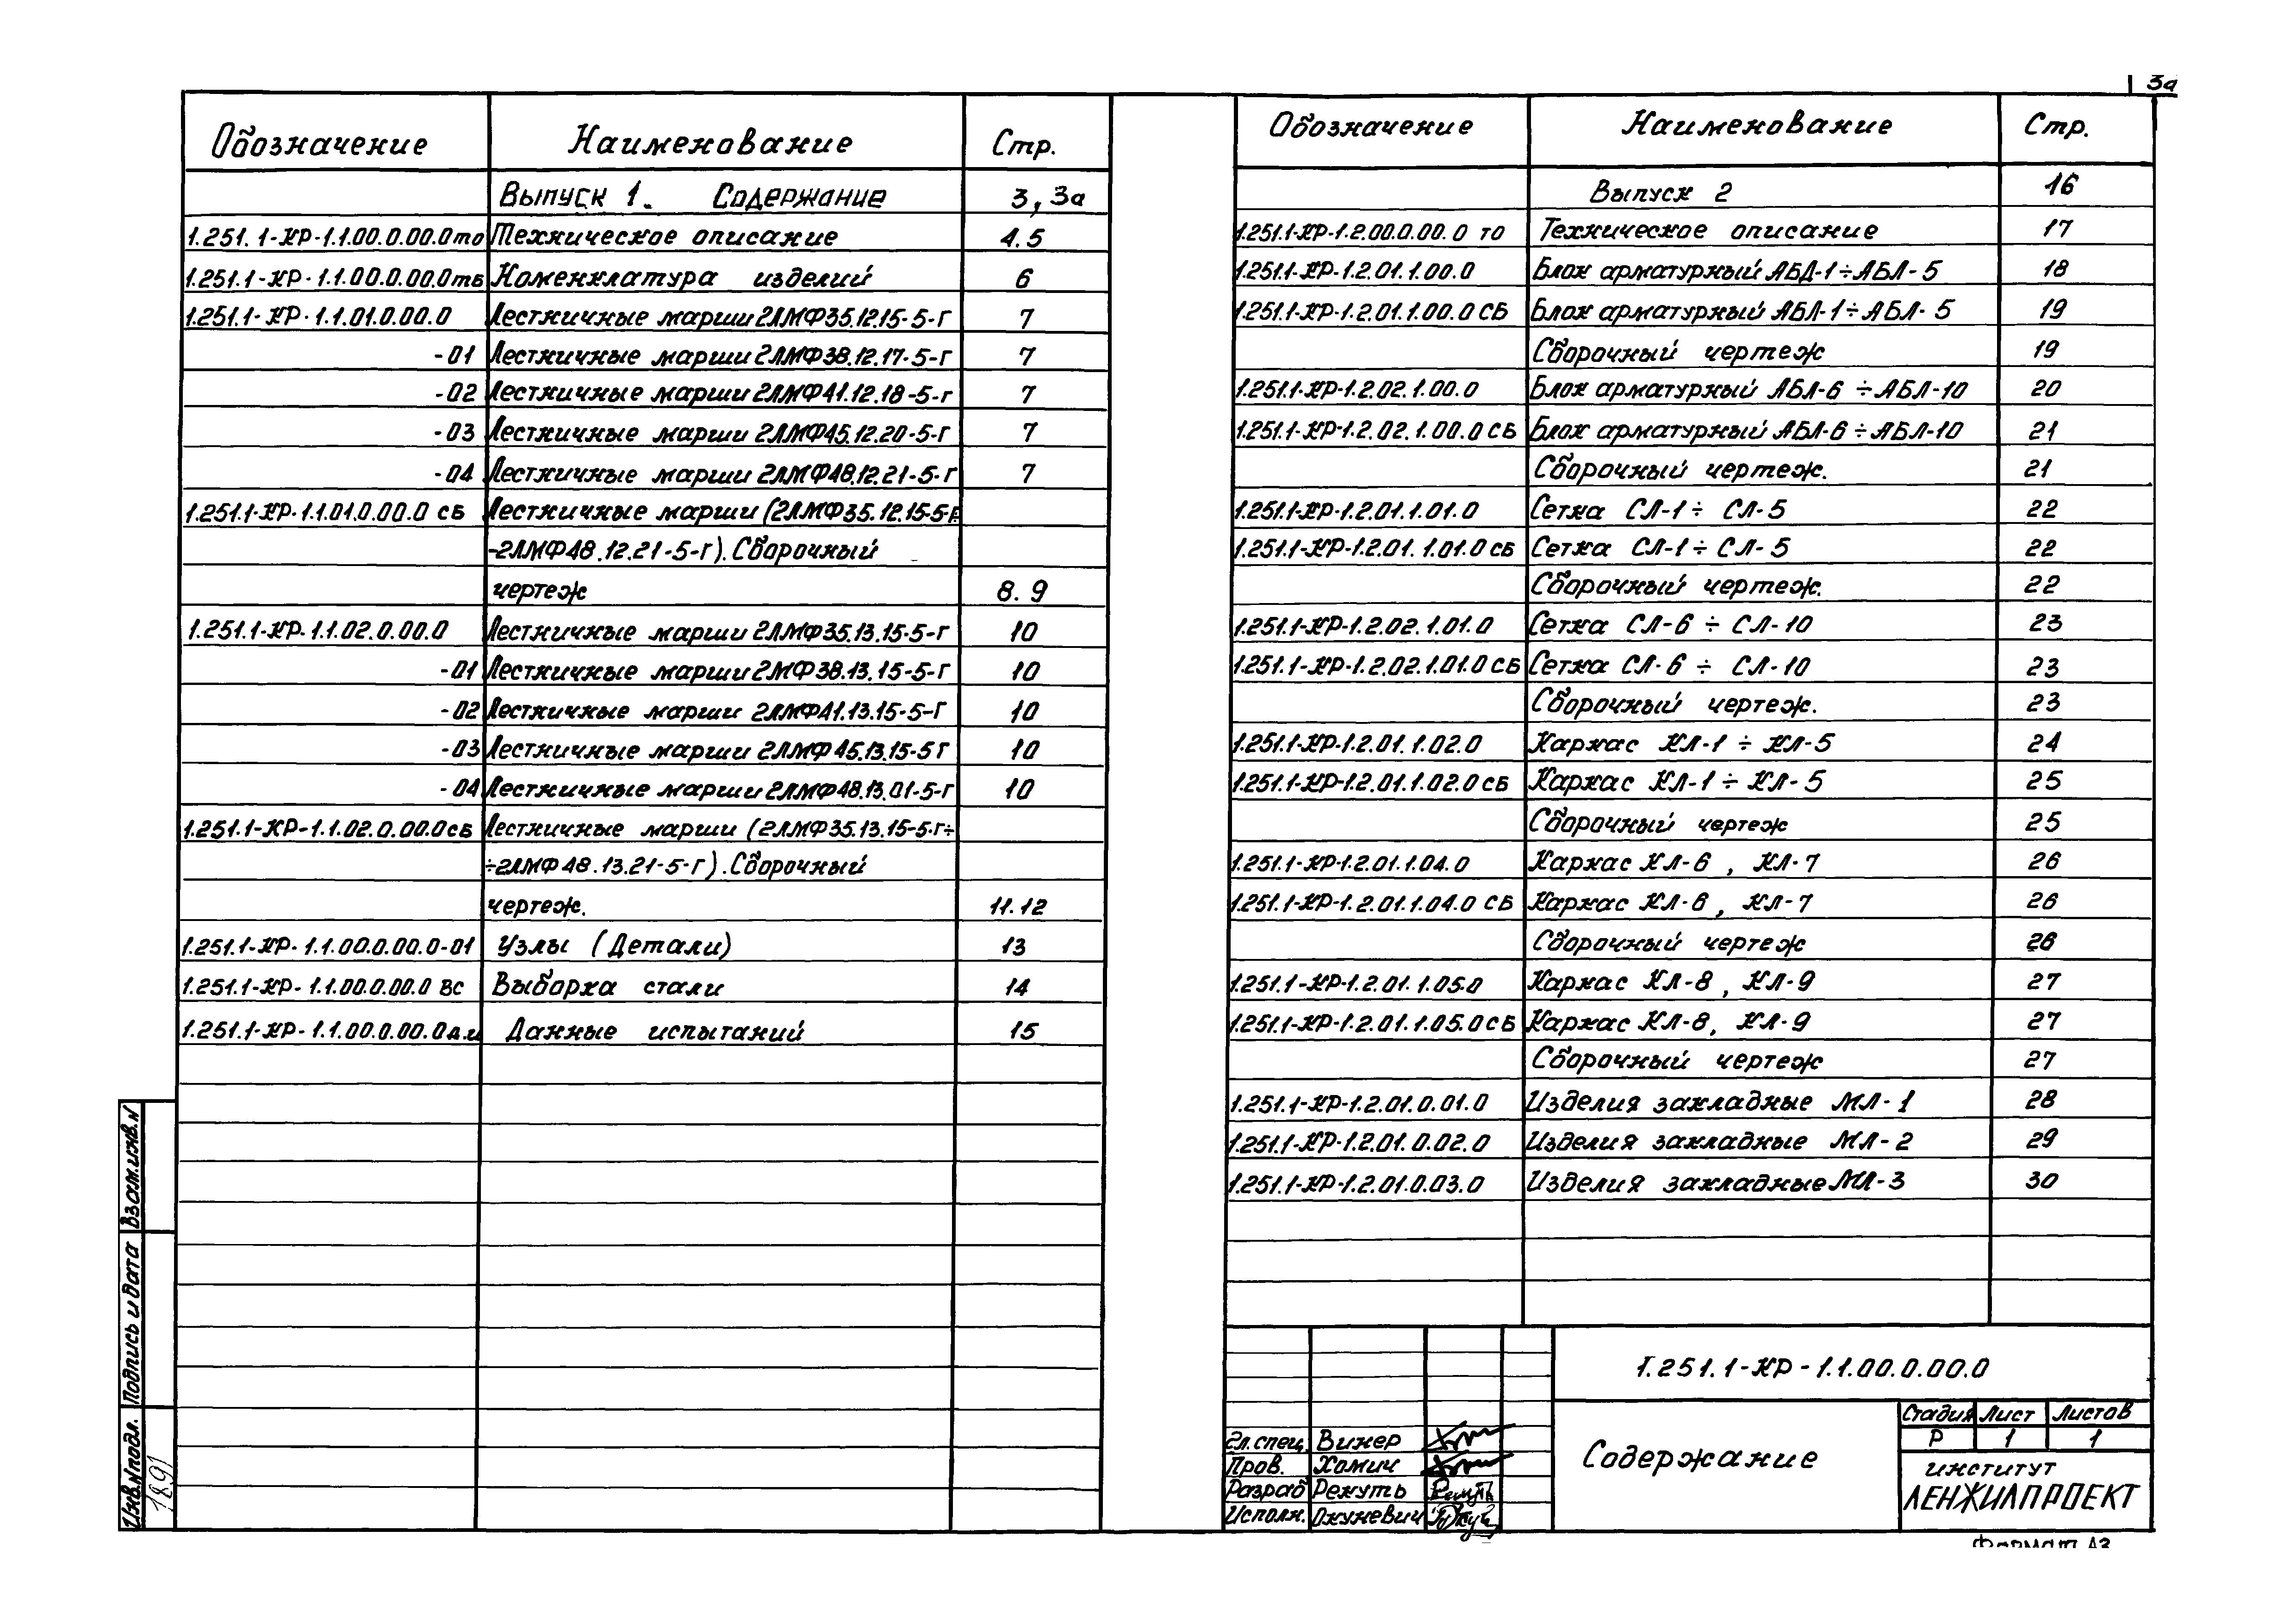 3а
Обозначение Наименование Стр.
Выпуск 1. Содержание 3, 3а
1.251.1-КР-1.1.00.0.00.0то Техническое описание 4.5
1.251.1-КР-1.1.00.0.00.0тб Номенклатура изделий 6
1.251.1-КР-1.1.01.0.00.0 Лестничные марши 2ЛМФ35.12.15-5-Г 7
-01 Лестничные марши 2ЛМФ38.12.17-5-г 7
-02 Лестничные марши 2ЛМФ41.12.18-5-г 7
-03 Лестничные марши 2ЛМФ45.12.20-5-Г 7
-04 Лестничные марши 2ЛМФ48.12.21-5-Г 7
1.251.1-КР-1.1.01.0.00.0 сб Лестничные марши (2ЛМФ35.12.15-5-г
-2ЛМФ48.12.21-5-Г). Сборочный
чертеж 8.9
1.251.1-КР-1.1.02.0.00.0 Лестничные марши 2ЛМФ35.13.15-5-Г 10
-01 Лестничные марши 2МФ38.13.15-5-Г 10
-02 Лестничные марши 2ЛМФ41.13.15-5-Г 10
-03 Лестничные марши 2ЛМФ45.13.15-5Г 10
-04 Лестничные марши 2ЛМФ48.13.01-5-Г 10
1.251.1-КР-1.1.02.0.00.0сб Лестничные марши (2ЛМФ35.13.15-5-г÷
÷2ЛМФ48.13.21-5-Г). Сборочный
чертеж. 11.12
1.251.1-КР-1.1.00.0.00.0-01 Узлы (Детали) 13
1.251.1-КР-1.1.00.0.00.0 ВС Выборка стали 14
1.251.1-КР-1.1.00.0.00.0д.и Данные испытаний 15
Обозначение Наименование Стр.
Выпуск 2 16
1.251.1-КР-1.2.00.0.00.0 ТО Техническое описание 17
1.251.1-КР-1.2.01.1.00.0 Блок арматурный АБД-1÷АБЛ-5 18
1.251.1-КР-1.2.01.1.00.0 СБ Блок арматурный АБЛ-1÷АБЛ-5 19
Сборочный чертеж 19
1.251.1-КР-1.2.02.1.00.0 Блок арматурный АБЛ-6 ÷АБЛ-10 20
1.251.1-КР-1.2.02.1.00.0 СБ Блок арматурный АБЛ-6÷АБЛ-10 21
Сборочный чертеж. 21
1.251.1-КР-1.2.01.1.01.0 Сетка СЛ-1÷ СЛ-5 22
1.251.1-КР-1.2.01.1.01.0 сб Сетка СЛ-1÷СЛ-5 22
Сборочный чертеж. 22
1.251.1-КР-1.2.02.1.01.0 Сетка СЛ-6 ÷ СЛ-10 23
1.251.1-КР-1.2.02.1.01.0 СБ Сетка СЛ-6 ÷ СЛ-10 23
Сборочный чертеж. 23
1.251.1-КР-1.2.01.1.02.0 Каркас КЛ-1 ÷ КЛ-5 24
1.251.1-КР-1.2.01.1.02.0 СБ Каркас КЛ-1÷КЛ-5 25
Сборочный чертеж 25
1.251.1-КР-1.2.01.1.04.0 Каркас КЛ-6, КЛ-7 26
1.251.1-КР-1.2.01.1.04.0 СБ Каркас КЛ-6, КЛ-7 26
Сборочный чертеж 26
1.251.1-КР-1.2.01.1.05.0 Каркас КЛ-8, КЛ-9 27
1.251.1-КР-1.2.01.1.05.0 СБ Каркас КЛ-8, КЛ-9 27
Сборочный чертеж 27
1.251.1-КР-1.2.01.0.01.0 Изделия закладные МЛ-1 28
1.251.1-КР-1.2.01.0.02.0 Изделия закладные МЛ-2 29
1.251.1-КР-1.2.01.0.03.0 Изделия закладные МЛ-3 30
1.251.1-КР-1.1.00.0.00.0
Содержание
Стадия Лист Листов
Р 1 1
институт
ЛЕНЖИЛПРОЕКТ
Гл.спец. Винер
Пров. Хомич
Разраб Рекуть
Исполн. Окуневич
Формат А3
Взам.инв.N
Подпись и дата
Инв.N подл.
1891